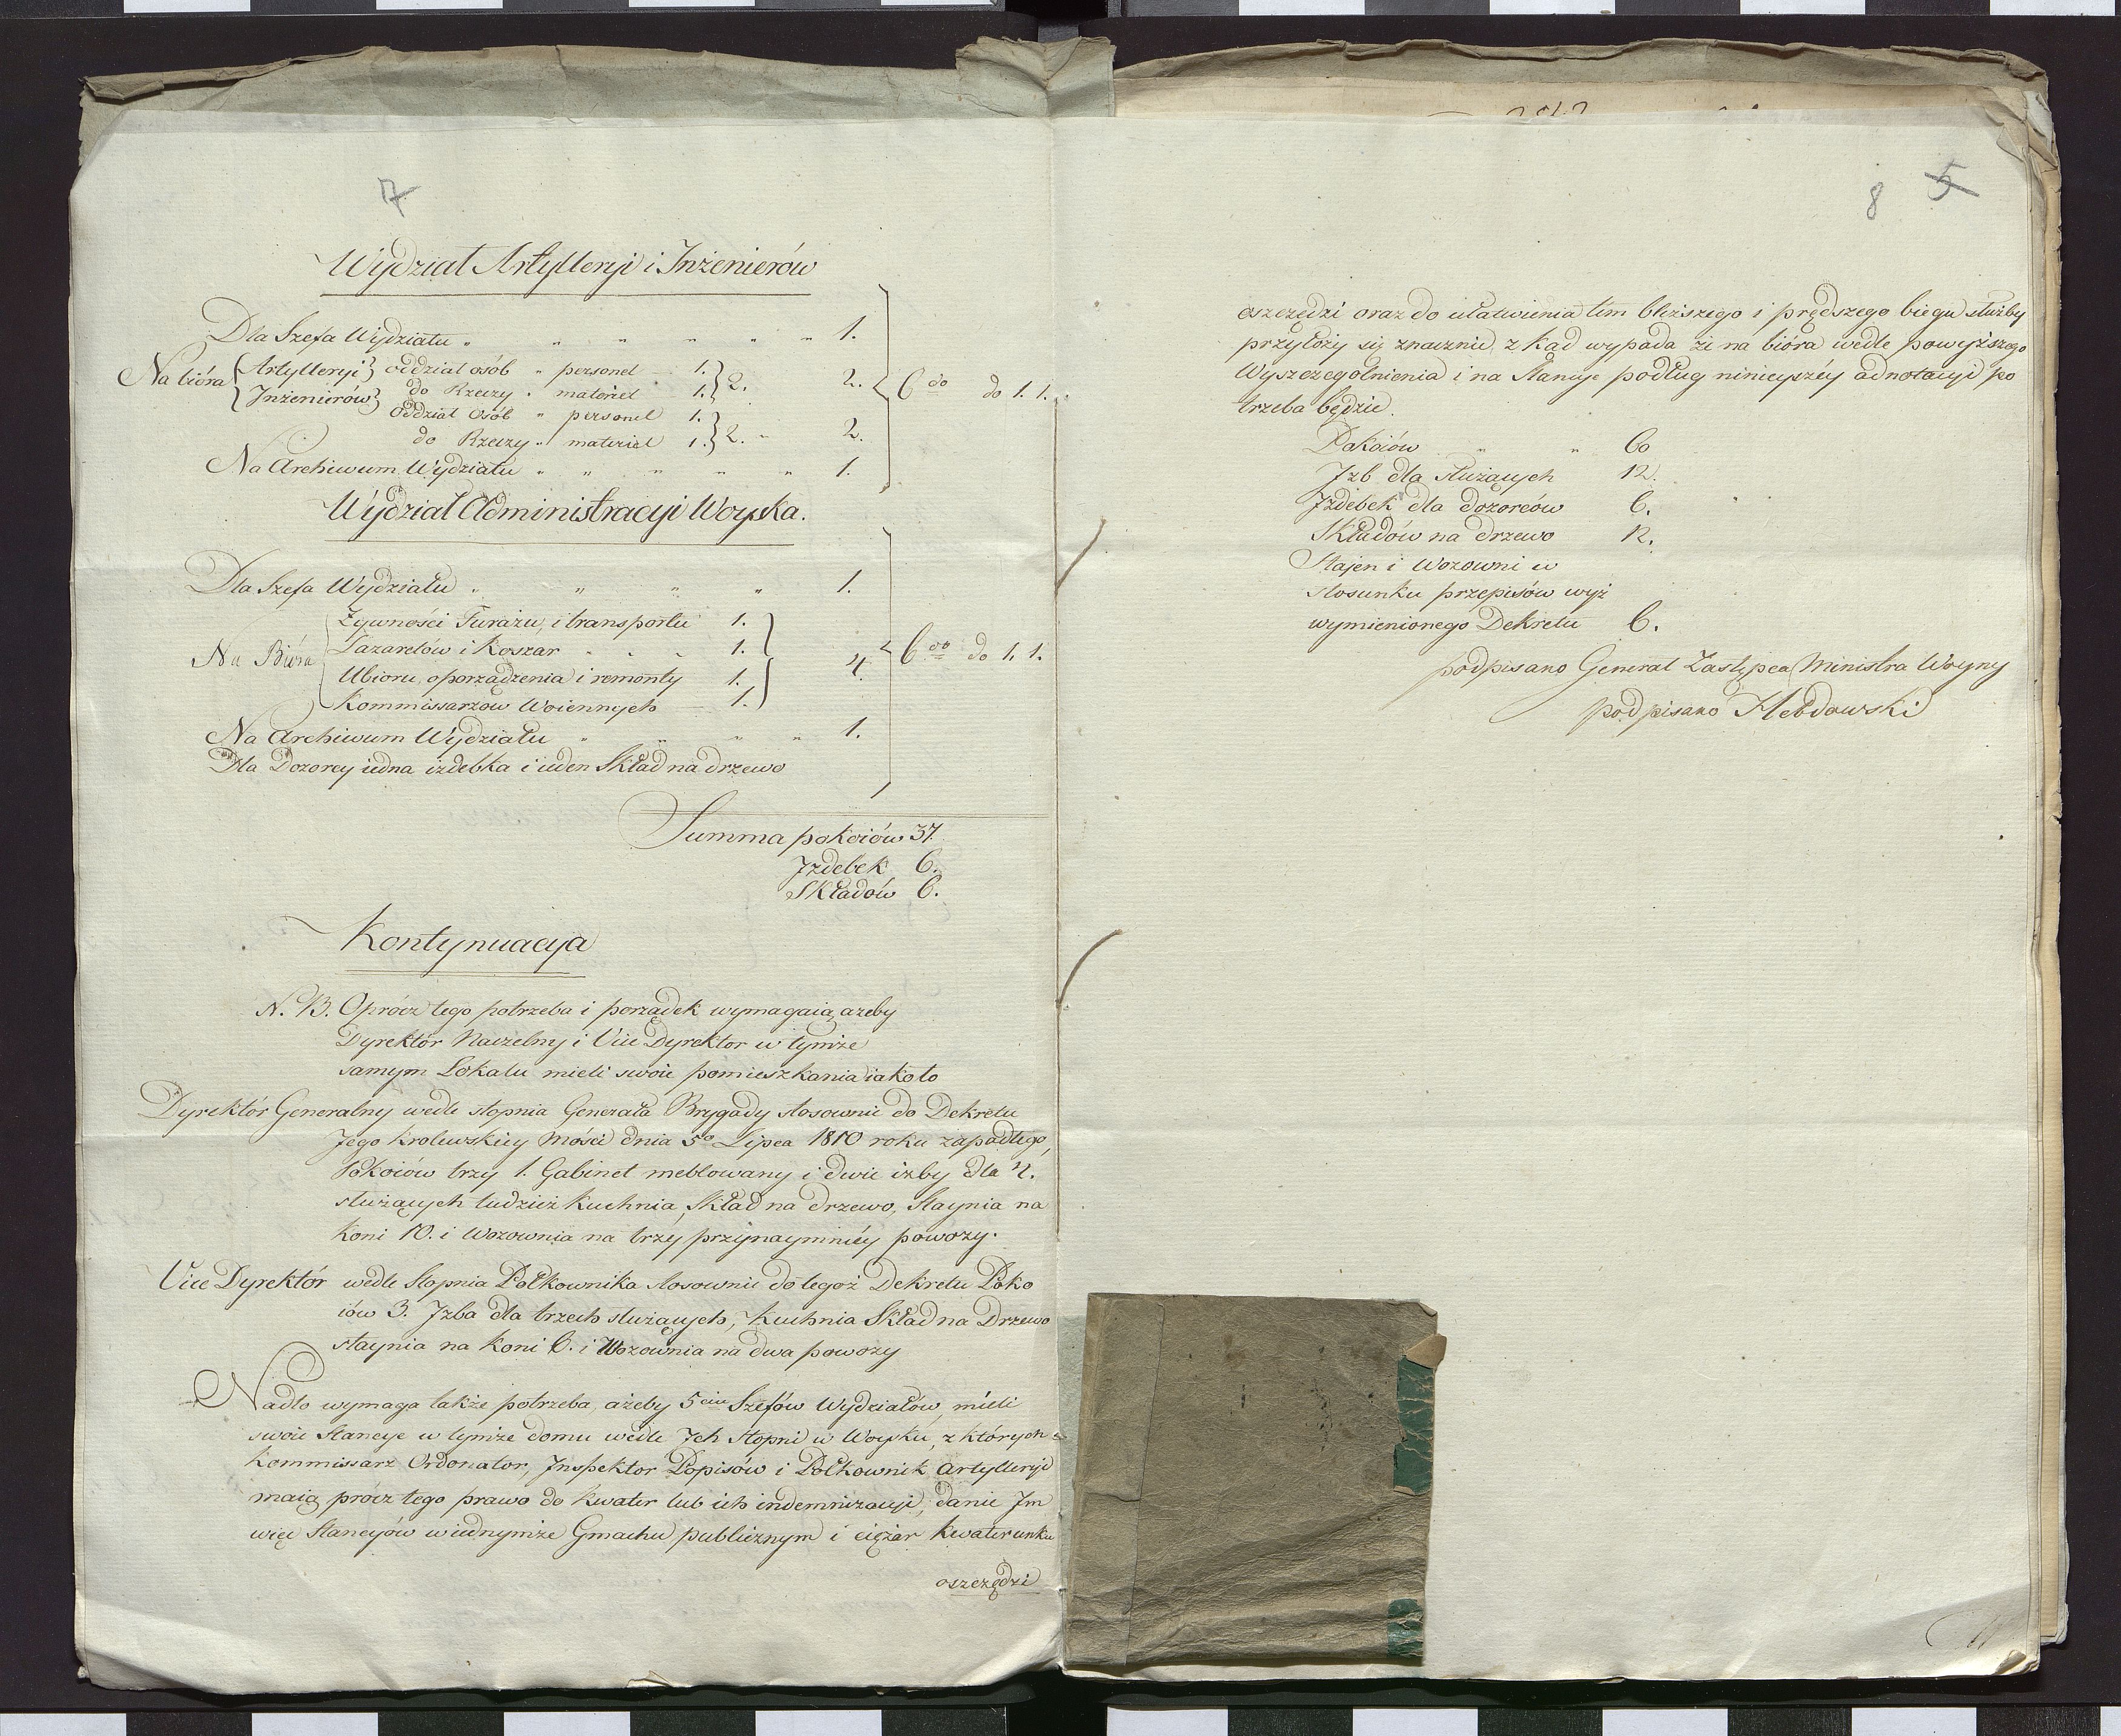 7
Wydział Artylleryi i Inżenierów
Dla Szefa Wydziału „ „ „ „ „ „ 1.
Na bióra { Artylleryi } oddział osób „ personel — 1. } 2. 2. 6 do do 1. 1.
{ Inżenierów } do Rzeczy „ materiel 1.
Oddział Osób „ personel 1. } 2. „ 2.
do Rzeczy „ materiel 1.
Na Archiwum Wydziału „ „ „ „ „ 1.
Wydział Administracyi Woyska.
Dla Szefa Wydziału „ „ „ „ 1.
Na Bióra { Zywności Furażu, i transportu 1. } 4. 6 do do 1. 1.
Lazaretów i Koszar „ „ „ 1.
Ubioru, oporządzenia i remonty 1.
Kommissarzów Woiennych — 1.
Na Archiwum Wydziału „ „ „ „ 1.
Dla Dozorcy iedna izdebka i ieden Skład na drzewo
Summa pokoiów 37.
Jzdebek 6.
Składów 6.
Kontynuacya
N. B. Oprócz tego potrzeba i porządek wymagaią, ażeby
Dyrektór Naczelny i Vice Dyrektor w tymże
samym Lokalu mieli swoie pomieszkania iako to
Dyrektór Generalny wedle stopnia Generała Brygady stosownie do Dekretu
Jego Krolewskiey Mości dnia 5o Lipca 1810 roku zapadłego,
Pokoiów trzy 1. Gabinet meblowany i dwie izby dla 4.
służących tudzież Kuchnia, Skład na drzewo, Staynia na
Koni 10. i Wozownia na trzy przynaymniéy powozy.
Vice Dyrektór wedle Stopnia Połkownika stosownie do tegoż Dekretu Poko
iów 3. Jzba dla trzech służących, Kuchnia Skład na Drzewo
staynia na Koni 6. i Wozownia na dwa powozy
Nadto wymaga także potrzeba, ażeby 5ciu Szefów Wydziałów, mieli
swoie Stancye w tymże domu wedle Jch Stopni w Woysku, z których
Kommissarz Ordonator, Jnspektor Popisów i Połkownik Artylleryi
maią prócz tego prawo do Kwater lub ich indemnizacyi, danie Jm
więc Stancyów w iednymże Gmachu publicznym i ciężar Kwaterunku
oszczędzi
8 5
oszczędzi oraz do ułatwienia tem bliższego i prędszego biegu służby
przyłoży się znacznie, z kąd wypada że na bióra wedle powyższego
Wyszczególnienia i na Stancye podług ninieyszéy adnotacyi po
trzeba będzie.
Pokoiów „ „ 60
Jzb dla służących 12.
Jzdebek dla dozorców 6.
Składów na drzewo 12.
Stajen i Wozowni w
stosunku przepisów wyż
wymienionego Dekretu 6.
podpisano Generał Zastępca Ministra Woyny
podpisano Hebdowski